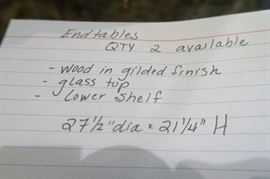 End tables
QTY 2 available
- wood in gilded finish
- glass top
- Lower Shelf
27 1/2" dia x 21 1/4" H